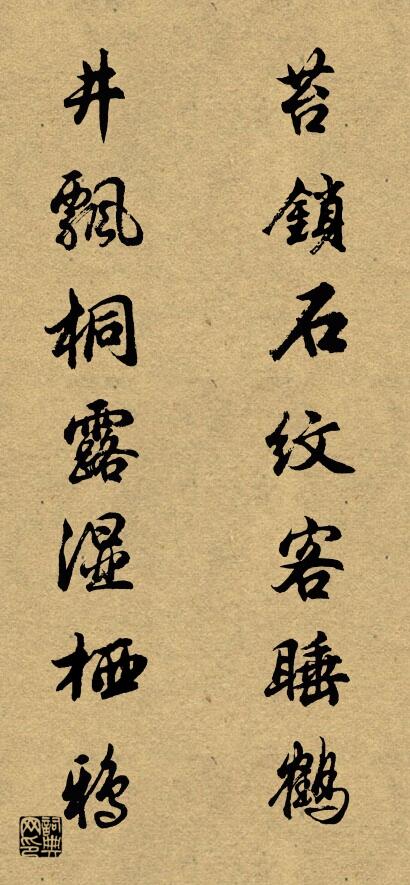 苔鎖石紋客睡鶴
井飄桐露濕栖鴉
詞典網印